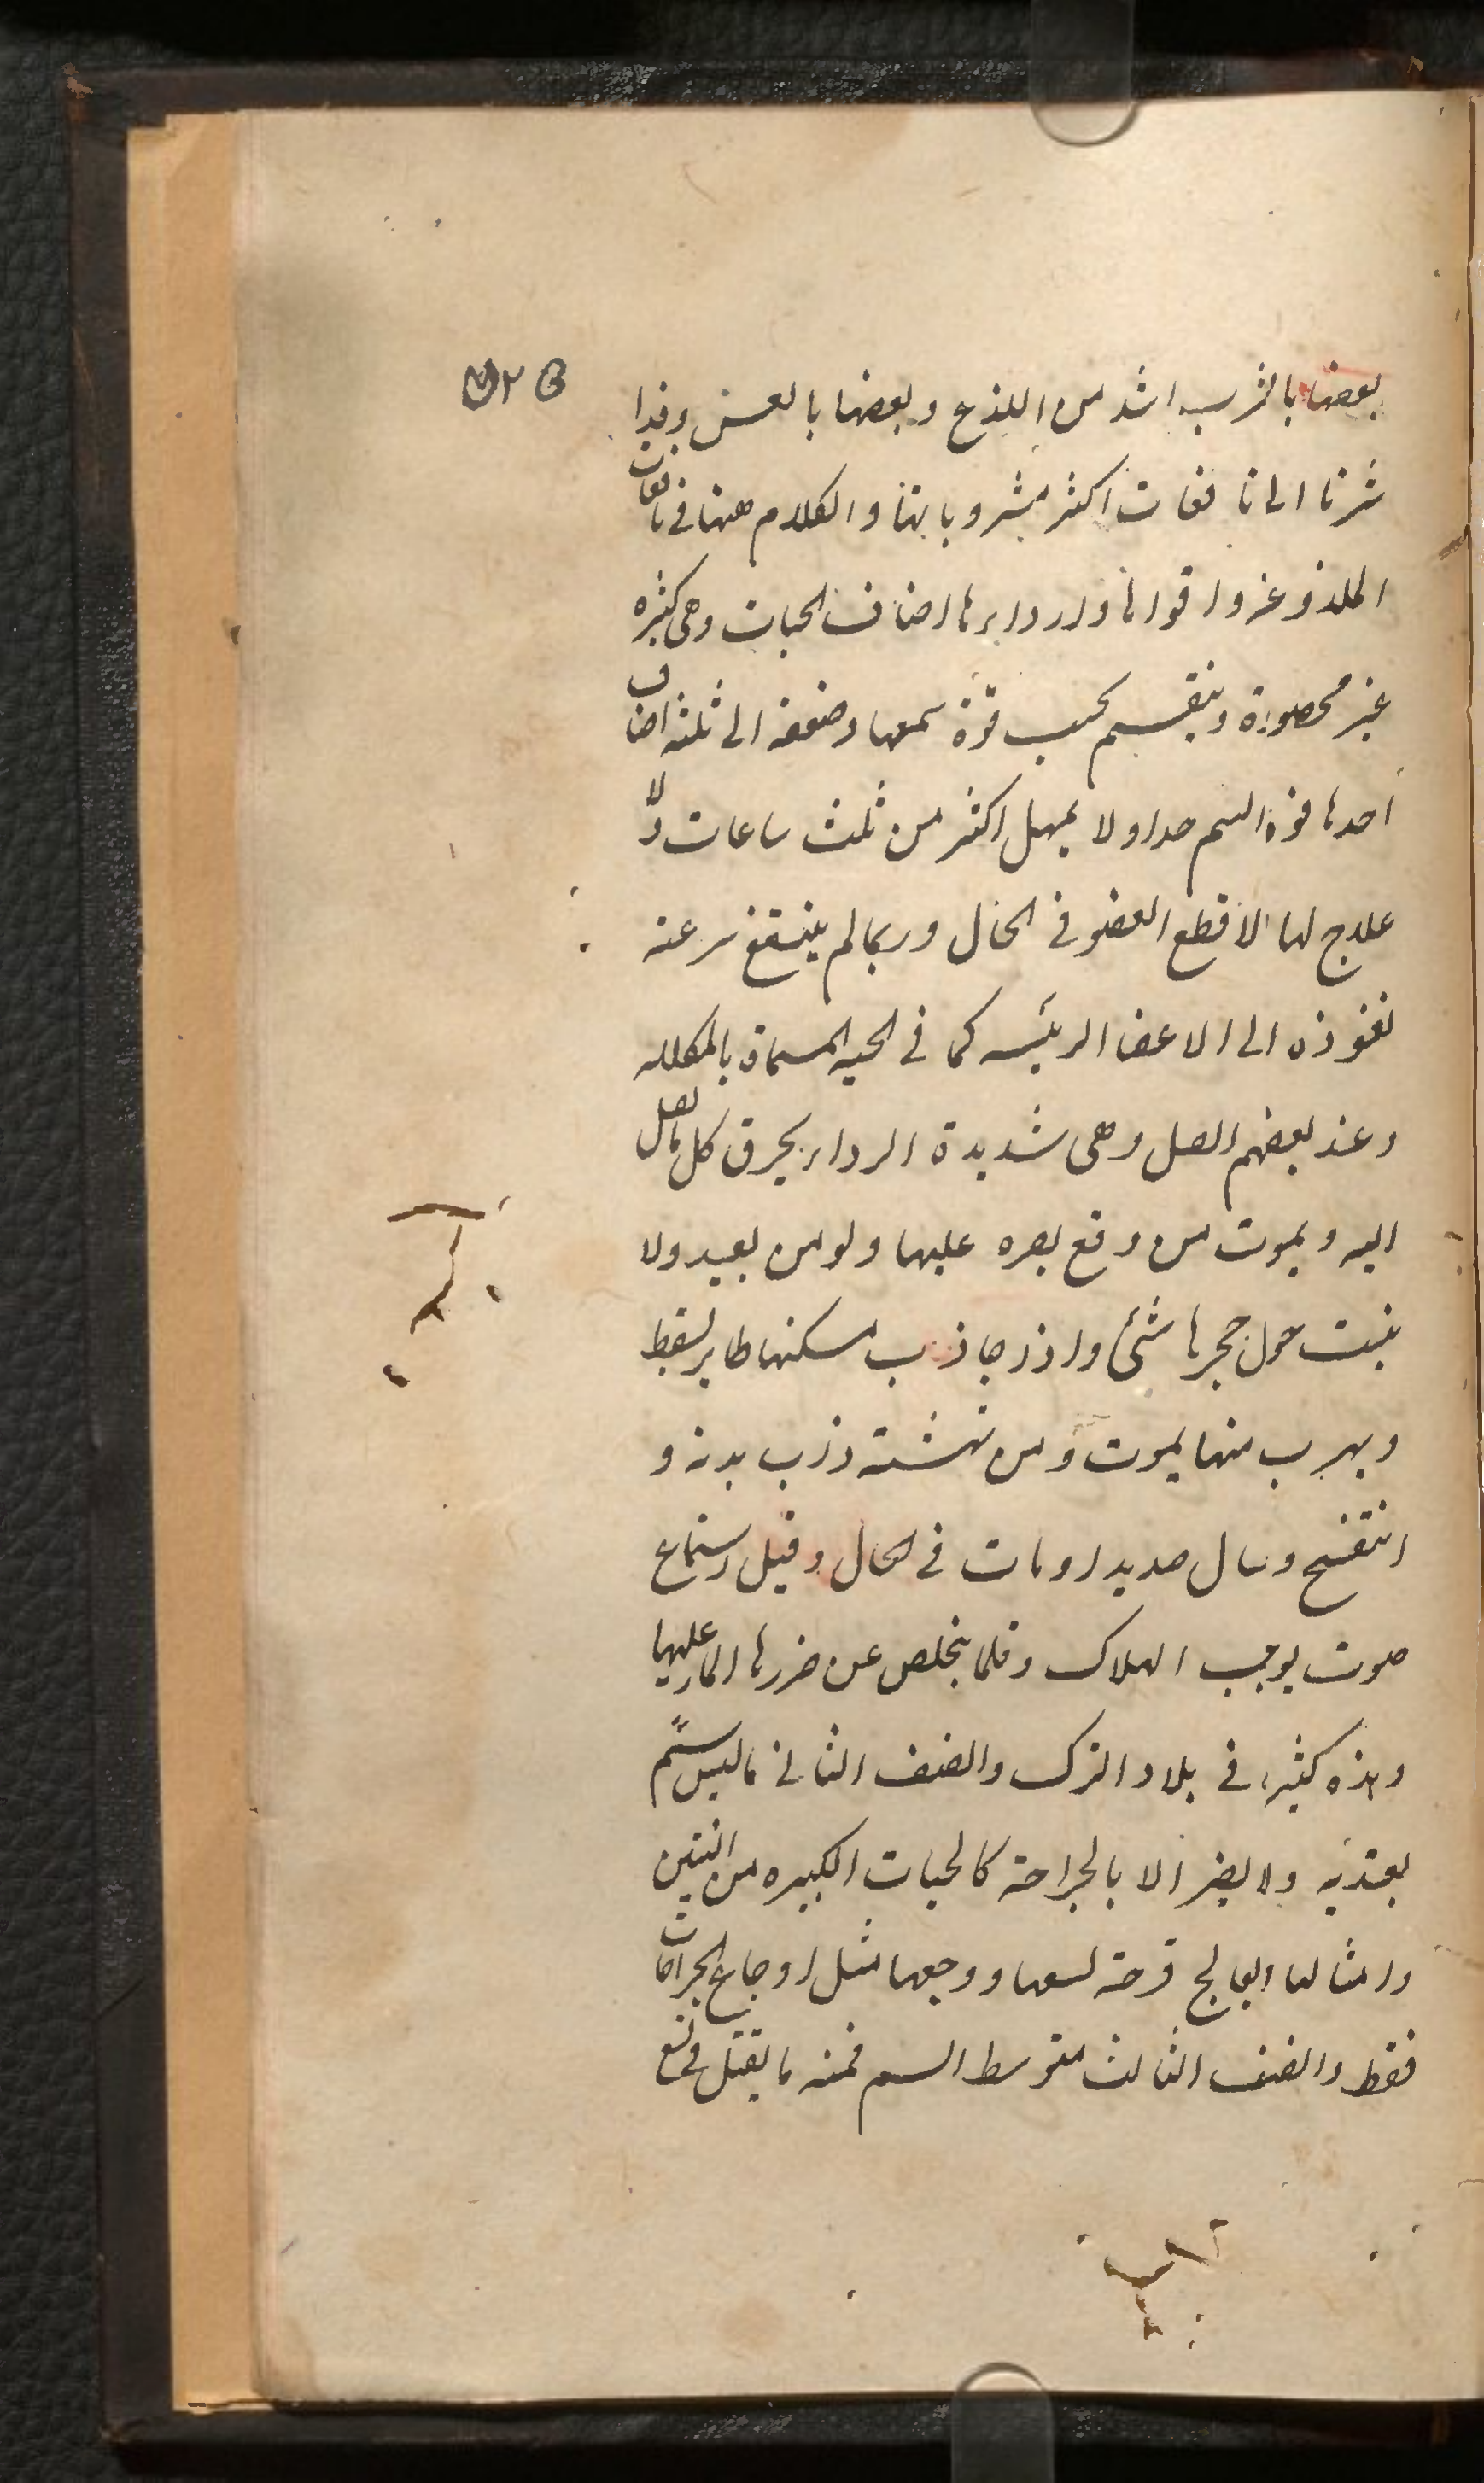 بعضها بالشرب اشد من اللدغ وبعضها بالعض وقد ا
شرنا الى نافعات اكثر مشروباتها والكلام ههنا فى نافعات
الملذوعة واقواها وارداءها اصناف الحيات وهى كثيره
غير محصورة وينقسم بحسب قوة سمها وضعفه الى ثلثه اصناف
احدها قوة السم جدا ولا يمهل اكثر من ثلث ساعات ولا
علاج لها الا قطع العضو فى الحال وربما لم ينفع سرعته
نفوذه الى الاعضا الرئيسه كما فى الحيه المسماة بالمكلله
وعند بعضهم الصل وهى شديدة الرداء يحرق كل ما تصل
اليه ويموت من وقع بصره عليها ولو من بعيد ولا
ينبت حول حجرها شئ واذا حاذب مسكنها طاير سقط
ويهرب منها يموت ومن نهشته ذرب بدنه و
انتفخ وسال صديدا ومات فى الحال وقيل استماع
صوت يوجب الهلاك وقلما يخلص عن ضررها المار عليها
وهذه كثيرة فى بلاد الترك والصنف الثانى ماليس سم
يعتد به ولا يضر الا بالجراحة كالحيات الكبيره من التنين
وامثالها يعالج قرحة لسعها ووجعها مثل اوجاع الجراحات
فقط والصنف الثالث متوسط السم فمنه ما يقتل فى تسع